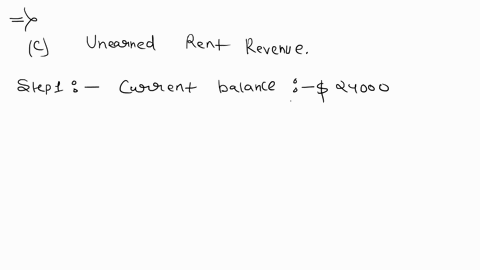 =>
(C) Unearned Rent Revenue.
Step1 :- Current balance :- $ 24000